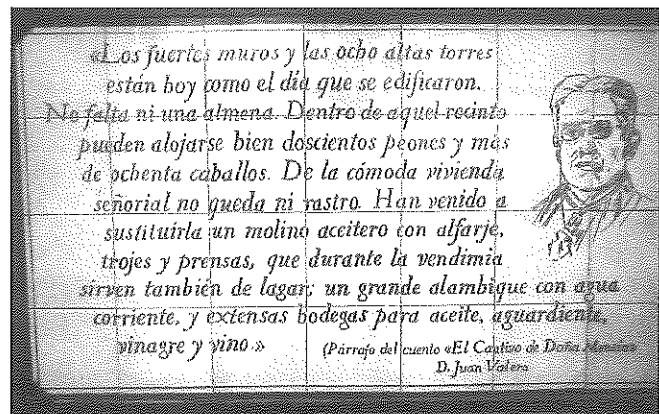 «Los fuertes muros y las ocho altas torres
están hoy como el día que se edificaron.
No falta ni una almena. Dentro de aquel recinto
pueden alojarse bien doscientos peones y más
de ochenta caballos. De la cómoda vivienda
señorial no queda ni rastro. Han venido a
sustituírla un molino aceitero con alfarje,
trojes y prensas, que durante la vendimia
sirven también de lagar; un grande alambique con agua
corriente, y extensas bodegas para aceite, aguardiente,
vinagre y vino.»
(Párrafo del cuento «El Cautivo de Doña Mencía»
D. Juan Valera